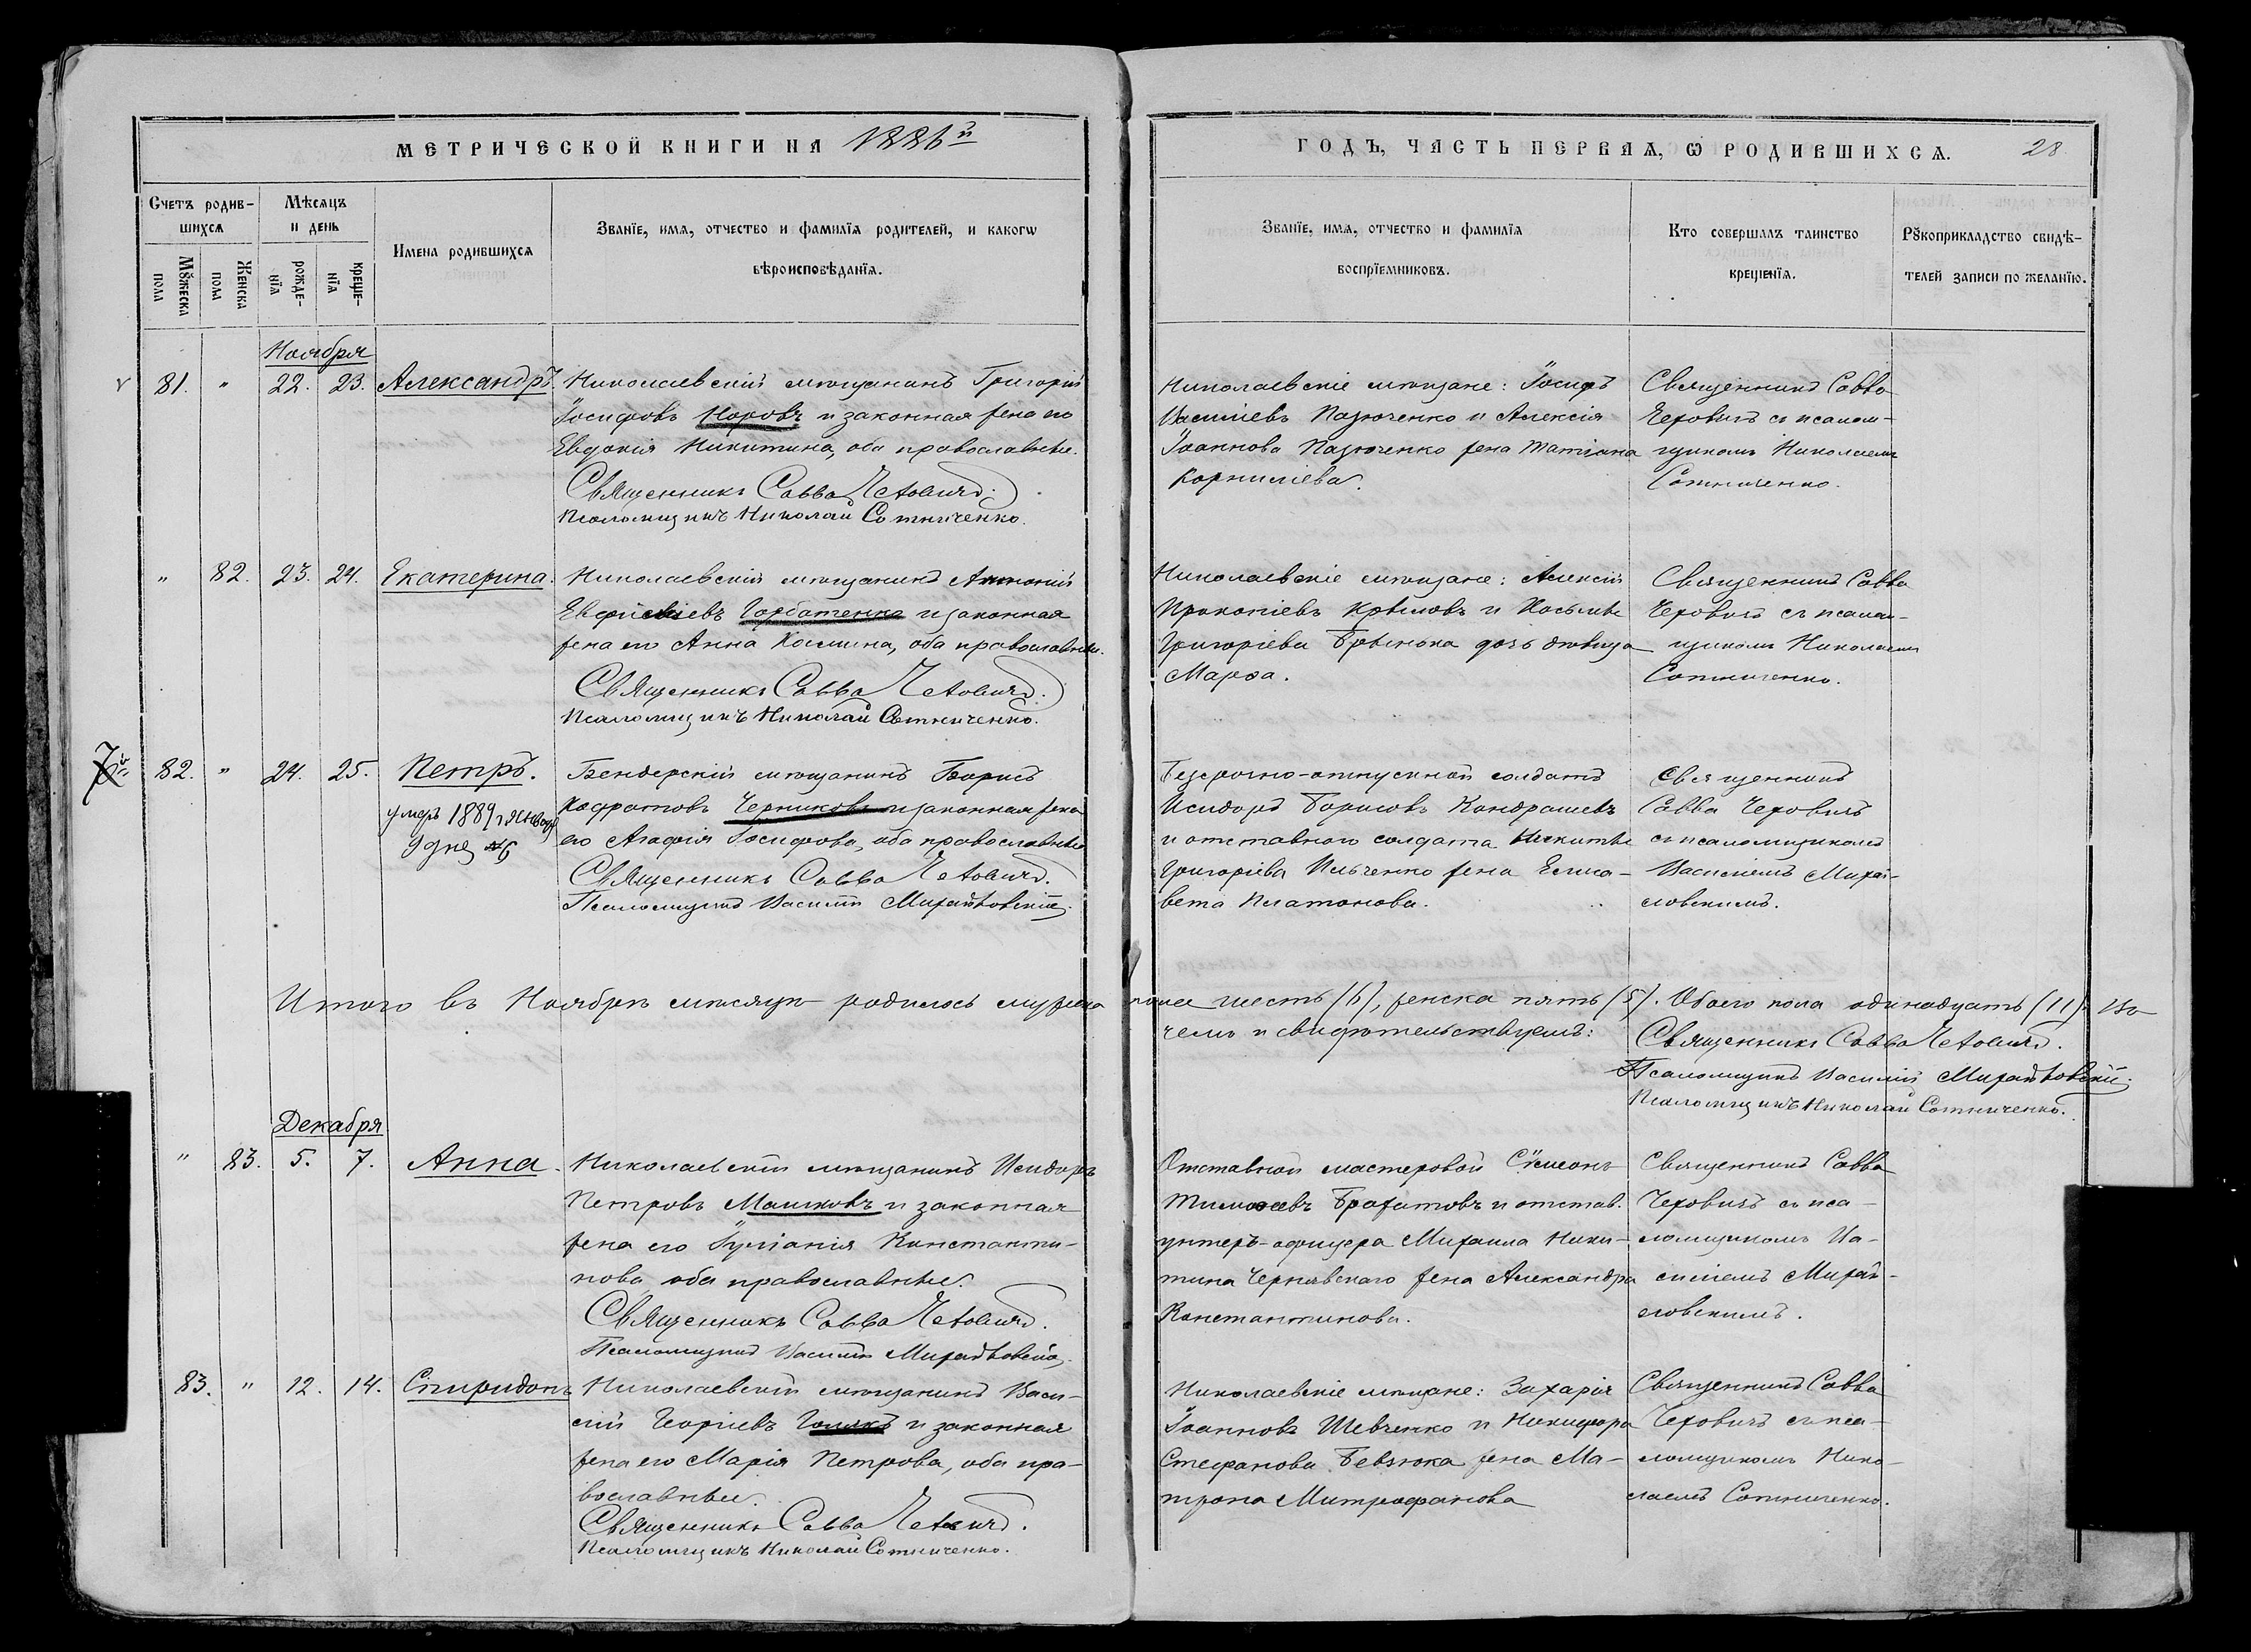 МЕТРИЧЕСКОЙ КНИГИ НА 1886й
ГОДЪ, ЧАСТЬ ПЕРВАЯ, Ѡ РОДИВШИХСѦ.
28
Счетъ родив-
шихсѧ
Мѣсяцъ
и день
Имена родившихсѧ
Званїе, имѧ, отчество и фамилїѧ родителей, и какогѡ
вѣроисповѣданїѧ.
Мꙋжеска
пола
Женска
пола
рожде-
нїѧ
креще-
нїѧ
Званїе, имѧ, отчество и фамилїѧ
воспрїемниковъ.
Кто совершалъ таинство
крещенїѧ.
Рꙋкоприкладство свидѣ-
телей записи по желанїю.
Ноября
81. " 22. 23. Александръ.
Николаевскій мѣщанинъ Григорій
Іосифовъ Норовъ и законная жена его
Евдокія Никитина, оба православные.
Священникъ Савва Чеховичъ.
Псаломщикъ Николай Сотниченко.
Николаевскіе мѣщане: Іосифъ
Василіевъ Пазюченко и Алексія
Іоаннова Пазюченко жена Татіана
Корниліева.
Священникъ Савва
Чеховичъ съ псалом-
щикомъ Николаемъ
Сотниченко.
" 82. 23. 24. Екатерина.
Николаевскій мѣщанинъ Антоній
Горбатенко и законная
жена его Анна Космина, оба православные.
Священникъ Савва Чеховичъ.
Псаломщикъ Николай Сотниченко.
Николаевскіе мѣщане: Алексій
Прокопіевъ Крыловъ и Косьмы
Григоріева дочь дѣвица
Марѳа.
Священникъ Савва
Чеховичъ съ псалом-
щикомъ Николаемъ
Сотниченко.
82. " 24. 25. Петръ.
умеръ 1889 г Января
9 дня №6
Бендерскій мѣщанинъ Борисъ
Кодратовъ Черниковъ и законная жена
его Агафія Іосифова, оба православные
Священникъ Савва Чеховичъ.
Псаломщикъ Василій
Безсрочно-отпускной солдатъ
Исидоръ Борисовъ Кондрашевъ
и отставного солдата Никиты
Григоріева Ильченко жена Елиса-
вета Платонова.
Священникъ
Савва Чеховичъ
съ псаломщикомъ
Василіемъ
Итого въ Ноябрѣ мѣсяцѣ родилось мужеска пола шесть (6), женска пять (5). Обоего пола одинадцать (11). Въ
чемъ и свидѣтельствуемъ:
Священникъ Савва Чеховичъ.
Псаломщикъ Василій
Псаломщикъ Николай Сотниченко.
Декабря
" 83. 5. 7. Анна.
Николаевскій мѣщанинъ Исидоръ
Петровъ Машковъ и законная
жена его Іуліанія Константи-
нова, оба православные.
Священникъ Савва Чеховичъ.
Псаломщикъ Василій
Отставной мастеровой Сѵмеонъ
Тимоѳеевъ Брахатовъ и отстав.
унтеръ-офицера Михаила Ники-
тина Чернявскаго жена Александра
Константинова.
Священникъ Савва
Чеховичъ съ пса-
ломщикомъ Ва-
силіемъ
83. " 12. 14. Спиридонъ
Николаевскій мѣщанинъ Васи-
лій Георгіевъ и законная
жена его Марія Петрова, оба пра-
вославные.
Священникъ Савва Чеховичъ.
Псаломщикъ Николай Сотниченко.
Николаевскіе мѣщане: Захарія
Іоанновъ Шевченко и Никифора
Стефанова Бевзюка жена Ма-
трона Митрофанова
Священникъ Савва
Чеховичъ съ пса-
ломщикомъ Нико-
лаемъ Сотниченко.